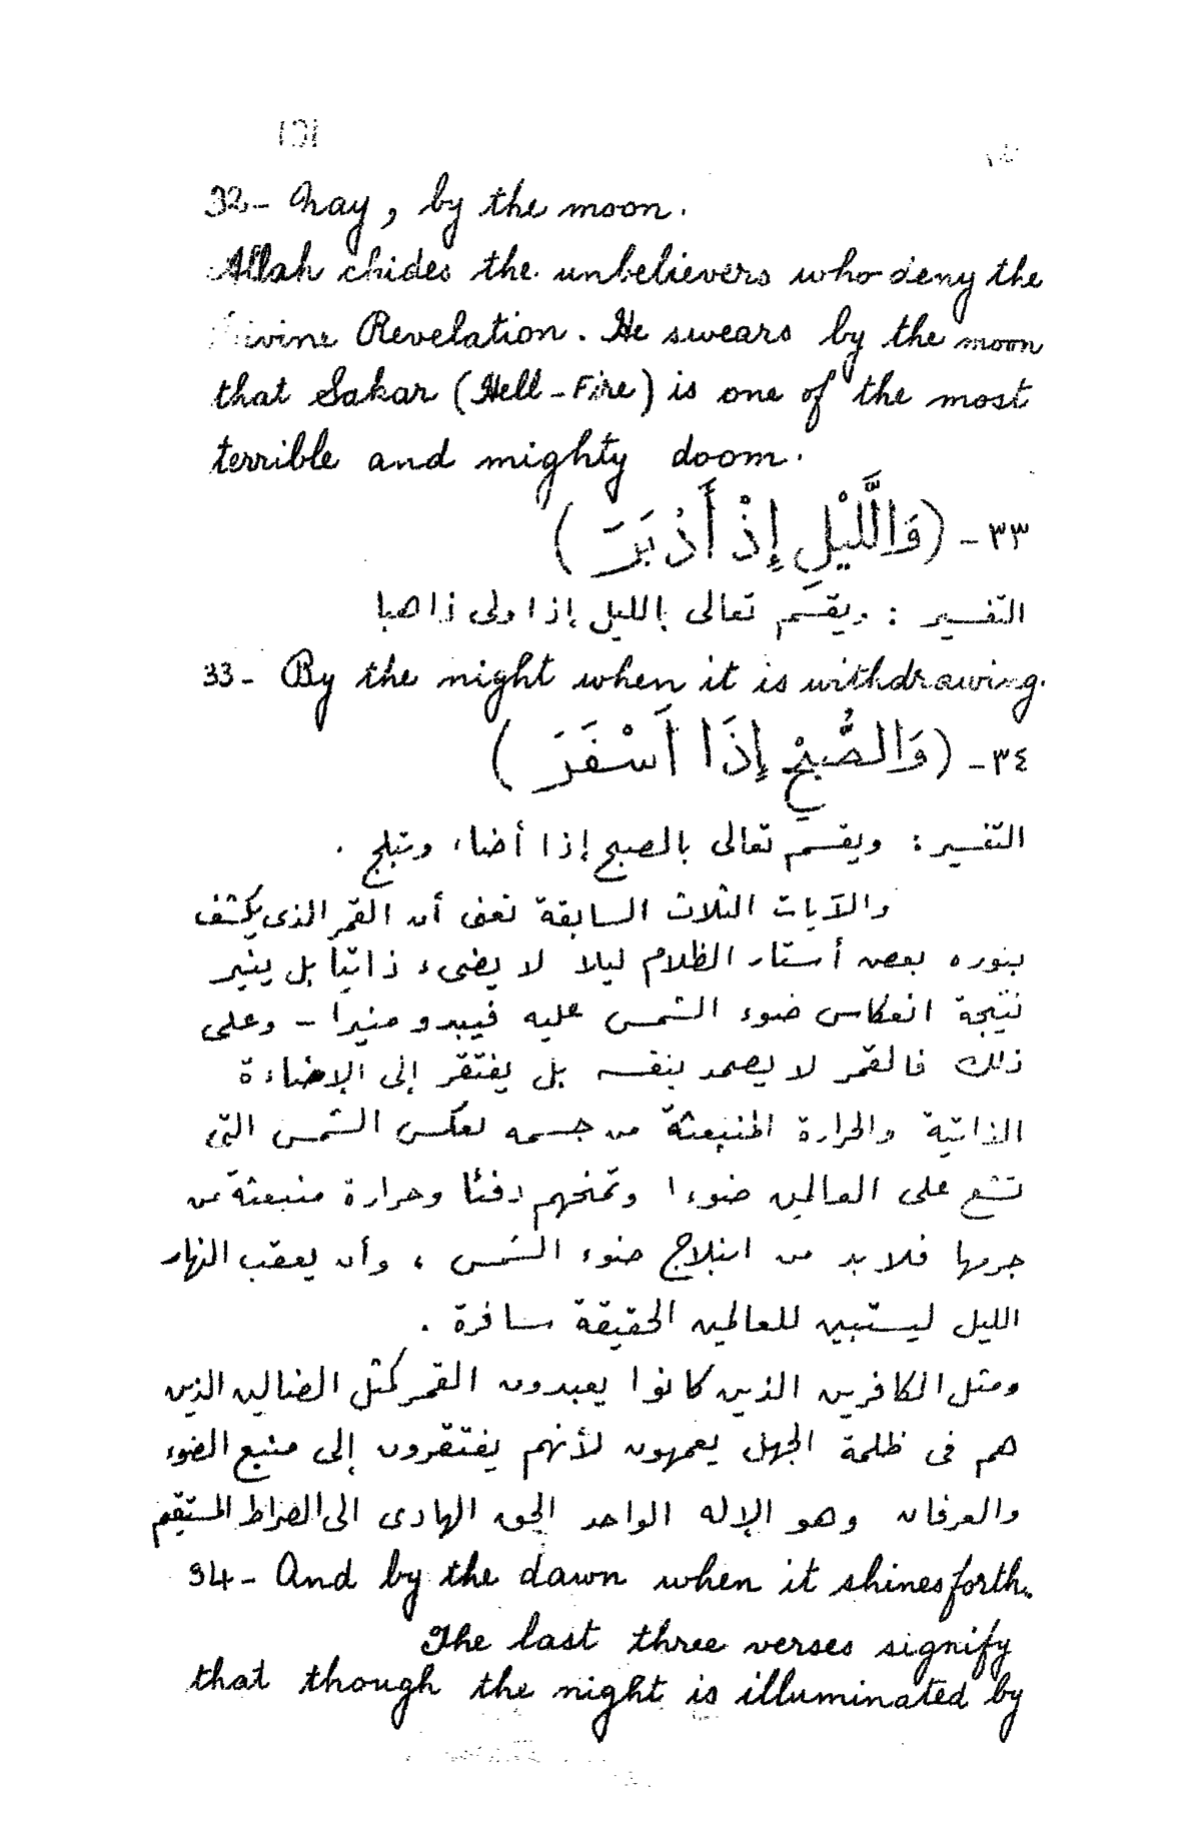 32- Nay, by the moon.
Allah chides the unbelievers who deny the
Divine Revelation. He swears by the moon
that Sakar (Hell-Fire) is one of the most
terrible and mighty doom.
٣٣- (وَالَّليْلِ إِذْ أَدْبَرَتَ)
التفسير : ويقسم تعالى بالليل إذا ولى ذاهبا
33- By the night when it is withdrawing.
٣٤- (وَالصُّبْحِ إِذَا اَسْفَرَ)
التفسير : ويقسم تعالى بالصبح إذا أضاء وتبلج .
والآيات الثلاث السابقة تعنى أن القمر الذى يكشف
بنوره بعض أستار الظلام ليلا لا يضىء ذاتيا بل ينير
نتيجة انعكاس ضوء الشمس عليه فيبدو منيرا - وعلى
ذلك فالقمر لا يصمد بنفسه بل يفتقر إلى الإضاءة
الذاتية والحرارة المنبعثة من جسمه بعكس الشمس التى
تشع على العالمين ضوءا وتمنحهم دفئا وحرارة منبعثة من
جرمها فلا بد من انبلاج ضوء الشمس ، وأن يعقب النهار
الليل ليستبين للعالمين الحقيقة سافرة .
ومثل الكافرين الذين كانوا يعبدون القمر كمثل الضالين الذين
هم فى ظلمة الجهل يعمهون لأنهم يفتقرون إلى منبع الضوء
والعرفان وهو الإله الواحد الحق الهادى الى الصراط المستقيم
34- And by the dawn when it shines forth.
The last three verses signify
that though the night is illuminated by